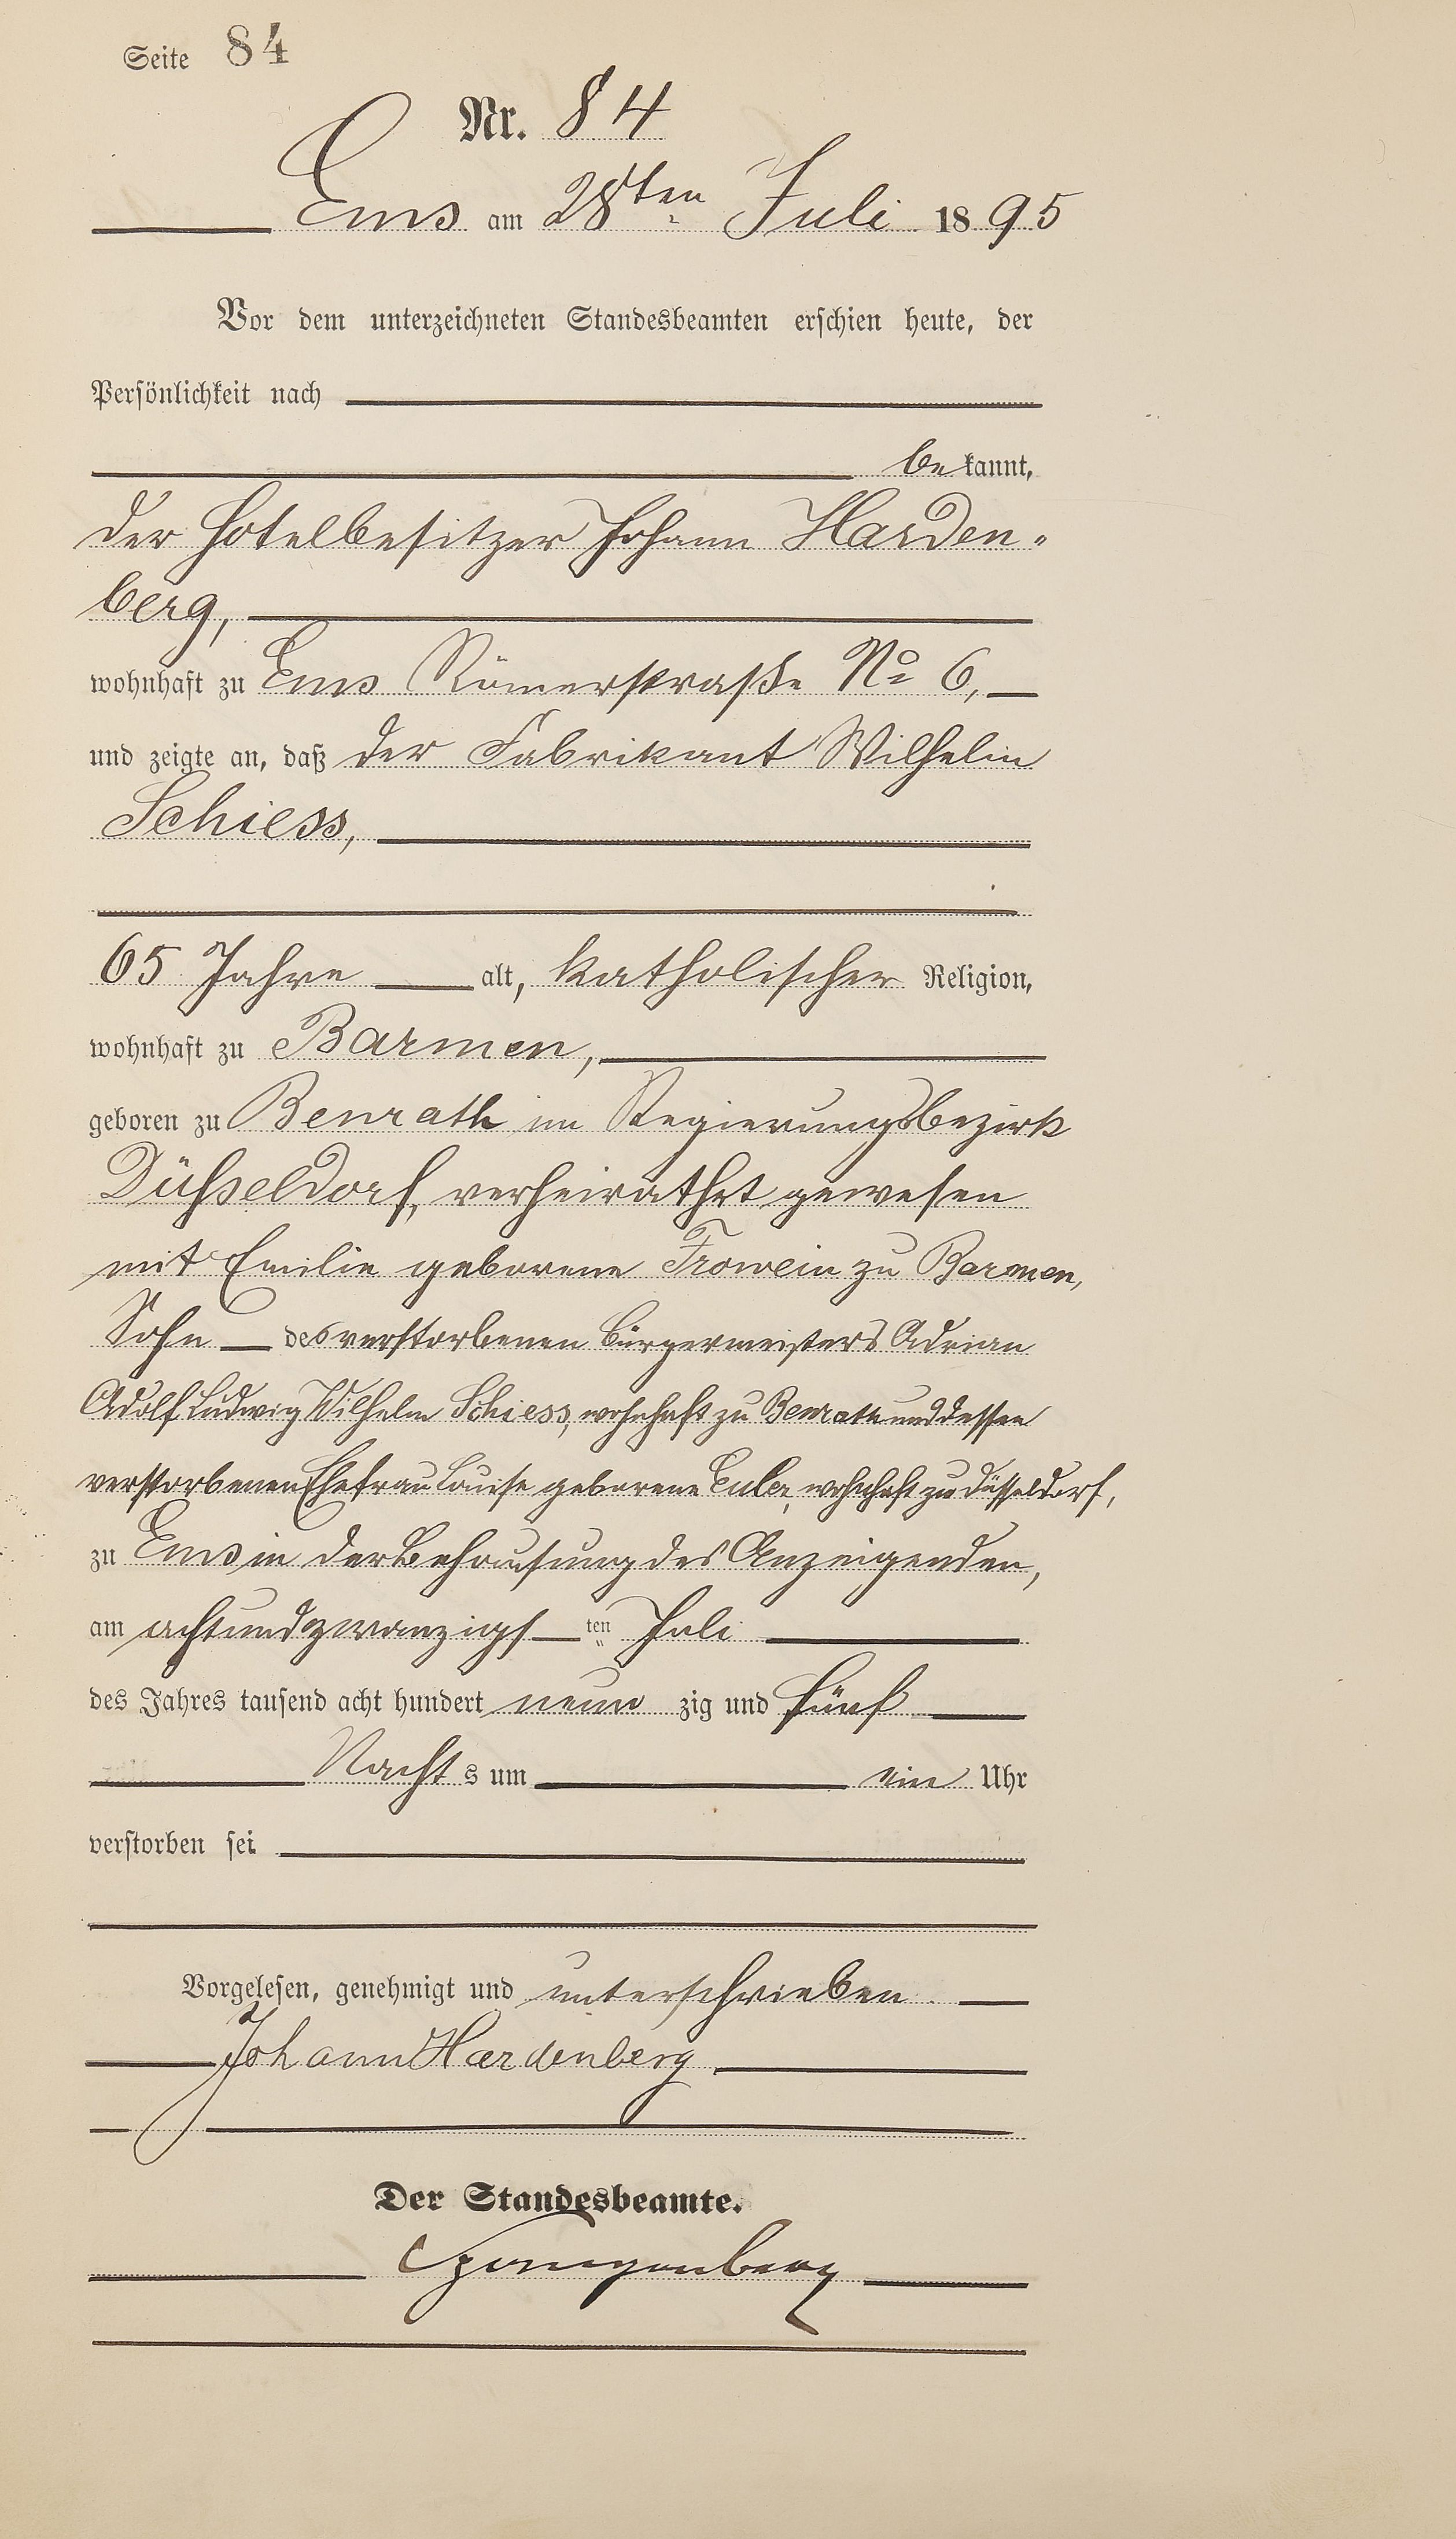 Seite 84
Nr. 84
Ems am 28ten Juli 1895
Vor dem unterzeichneten Standesbeamten erschien heute, der
Persönlichkeit nach
bekannt,
der Hotelbesitzer Johann Harden-
berg,
wohnhaft zu Ems Römerstraße No 6,
und zeigte an, daß der Fabrikant Wilhelm
Schiess,
65 Jahre alt, katholischer Religion,
wohnhaft zu Barmen,
geboren zu Benrath im Regierungsbezirk
Düsseldorf, verheirathet gewesen
mit Emilie geborene Frowein zu Barmen,
Sohn des verstorbenen Bürgermeisters Adrian
Adolf Ludwig Wilhelm Schiess, wohnhaft zu Benrath und dessen
verstorbenen Ehefrau Louise geborene wohnhaft zu Düsseldorf,
zu Ems in der Behausung des Anzeigenden,
am achtundzwanzigsten Juli
des Jahres tausend acht hundert neunzig und fünf
Nachts um ein Uhr
verstorben sei
Vorgelesen, genehmigt und unterschrieben
Johann Hardenberg
Der Standesbeamte.